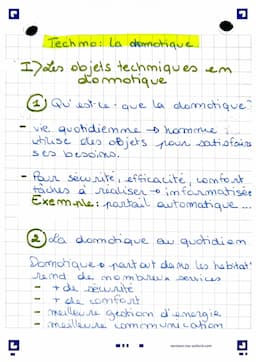 Techno: La domotique
I) Les objets techniques en
domotique
1 Qu'est-ce-que la domotique?
- vie quotidienne → homme :
utilise des objets pour satisfaire
ses besoins.
- Pour sécurité, efficacité, confort
tâches à réaliser → informatisée
Exemple: portail automatique...
2 La domotique au quotidien
Domotique → partout dans les habitat
rend de nombreux services
- + de sécurité
- + de confort
- meilleure gestion d'énergie
- meilleure communication